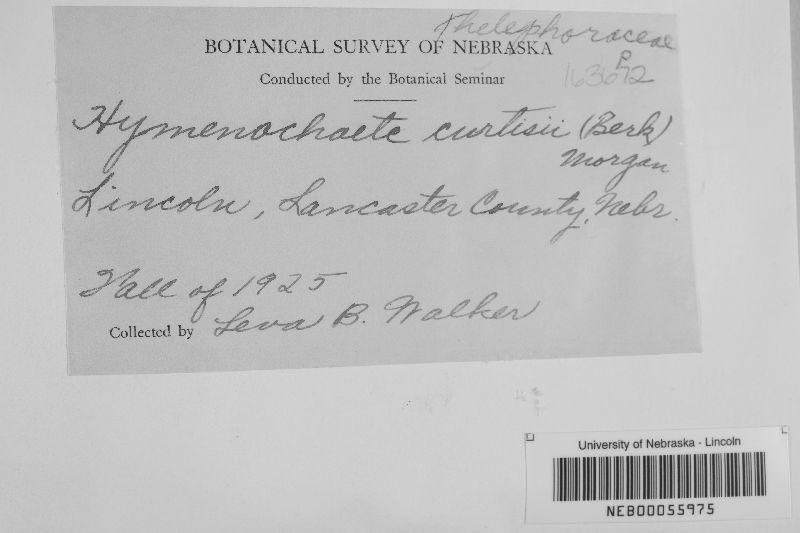 Thelephoraceae
BOTANICAL SURVEY OF NEBRASKA
Conducted by the Botanical Seminar
P
163672
Hymenochaete curtisii (Berk)
Morgan
Lincoln, Lancaster County, Nebr.
Fall of 1925
Collected by Leva B. Walker
University of Nebraska - Lincoln
NEB00055975